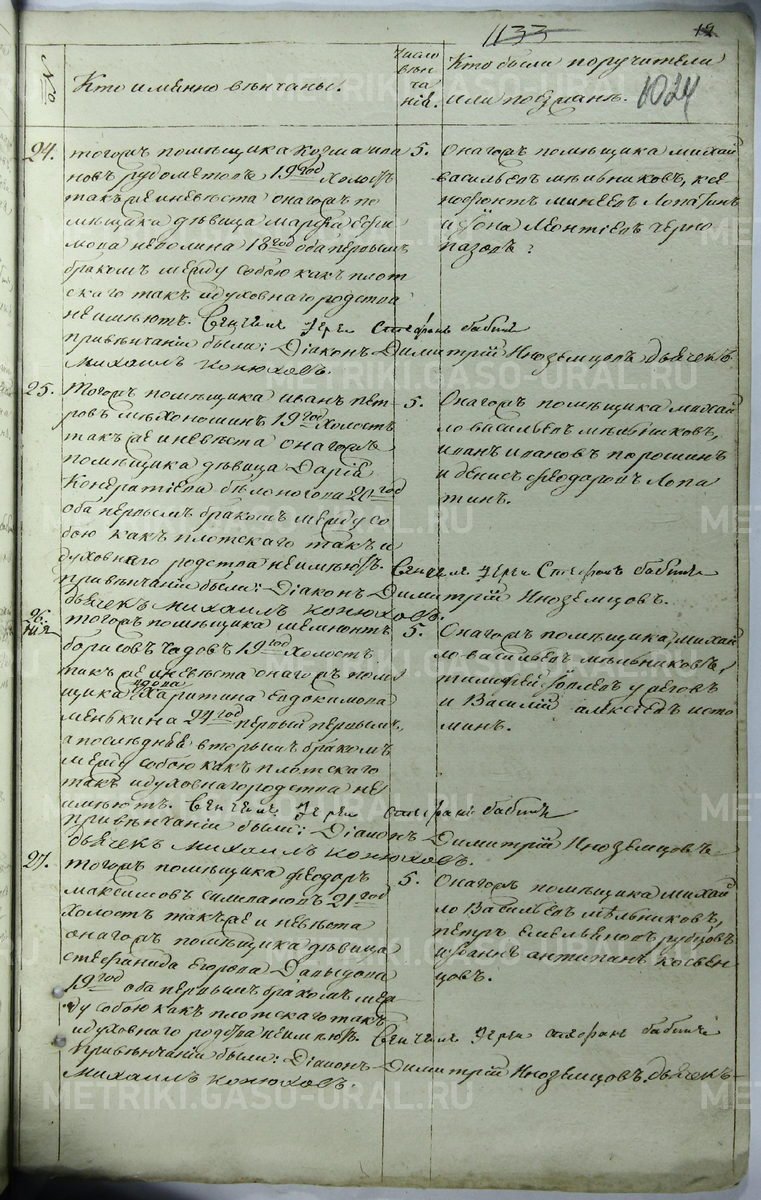 1133
19
1024
№
Кто именно венчаны.
Число вен ча ния.
Кто были поручители
или поезжане.
24.
тогожъ помѣщика Козма ива
новъ рудометовъ 19 год холостъ
такъ же иневѣста оногожъ по
мѣщика дѣвица Марфа ефи
мова неволина 18 год оба первымъ
бракомъ между собою какъ плот
скаго такъ идуховнаго родства
не имѣютъ. Венчалъ Iерей Стефанъ бабинъ
привѣнчании были: Дiаконъ Димитрiй Иноземцовъ дьячекъ
Михаилъ Конюховъ.
5.
Оногожъ помѣщика михай
васильевъ мѣльниковъ, ксе
нофонтъ минеевъ Лопатинъ
и Iона Леонтiевъ черно
25.
Тогожъ помѣщика иванъ пет
ровъ 19 год холостъ
такъ же иневѣста оногожъ
помѣщика дѣвица Дарiя
Кондратiева бѣлоногова 20 год
оба первымъ бракомъ между со
бою какъ плотскаго такъ и
духовнаго родства неимѣютъ. Венчалъ Iерей Стефанъ бабинъ
привѣнчании были: Дiаконъ Димитрiй Иноземцовъ.
дьячекъ михаилъ конюховъ.
5.
Оногожъ помѣщика михай
ло васильевъ мѣльниковъ,
иванъ ивановъ порошинъ
и денисъ феодоровъ Лопа
тинъ.
26.
тогожъ помѣщика
борисовъ 19 год холостъ
такъ же иневѣста оногожъ помѣ
щика вдова Харитина Евдокимова
менькина 24 год первый первымъ,
а последняя вторымъ бракомъ
между собою какъ плотскаго
такъ идуховнаго родства не
имѣютъ. Венчалъ Iерей стефанъ бабинъ
привѣнчании были: Дiаконъ Димитрiй Иноземцовъ
дьячекъ михаилъ конюховъ.
5.
Оногожъ помѣщика, михай
ло васильевъ мѣльниковъ,
тимофей
и Василiй алексеевъ исто
минъ.
27.
тогожъ помѣщика феодоръ
максимовъ 21 год
холостъ такъ же и невѣста
оногожъ помѣщика дѣвица
стефанида егорова
19 год оба первымъ бракомъ меж
ду собою какъ плотскаго такъ
идуховнаго родства неимѣютъ. Венчалъ Iерей стефанъ бабинъ
привѣнчании были: Дiаконъ Димитрiй Иноземцовъ. дьячекъ
михаилъ конюховъ.
5.
Оногожъ помѣщика михай
ло Васильевъ мѣльниковъ,
петръ емельяновъ рубцовъ
антипинъ косвен
цовъ.
METRIKI.GASO-URAL.RU